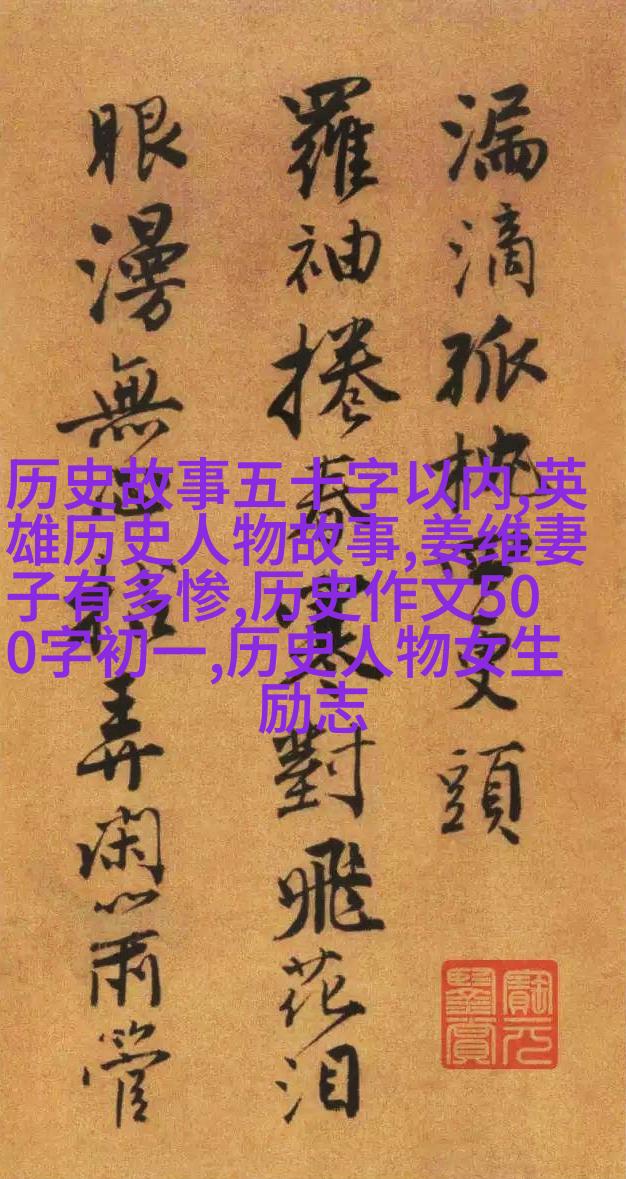 漏滴孤枕頭
羅袖捲春寒對飛花泪
眼漫無弄闲心雨管
历史故事五十字以内,英
雄历史人物故事,姜维妻
子有多惨,历史作文50
0字初一,历史人物女生
励志